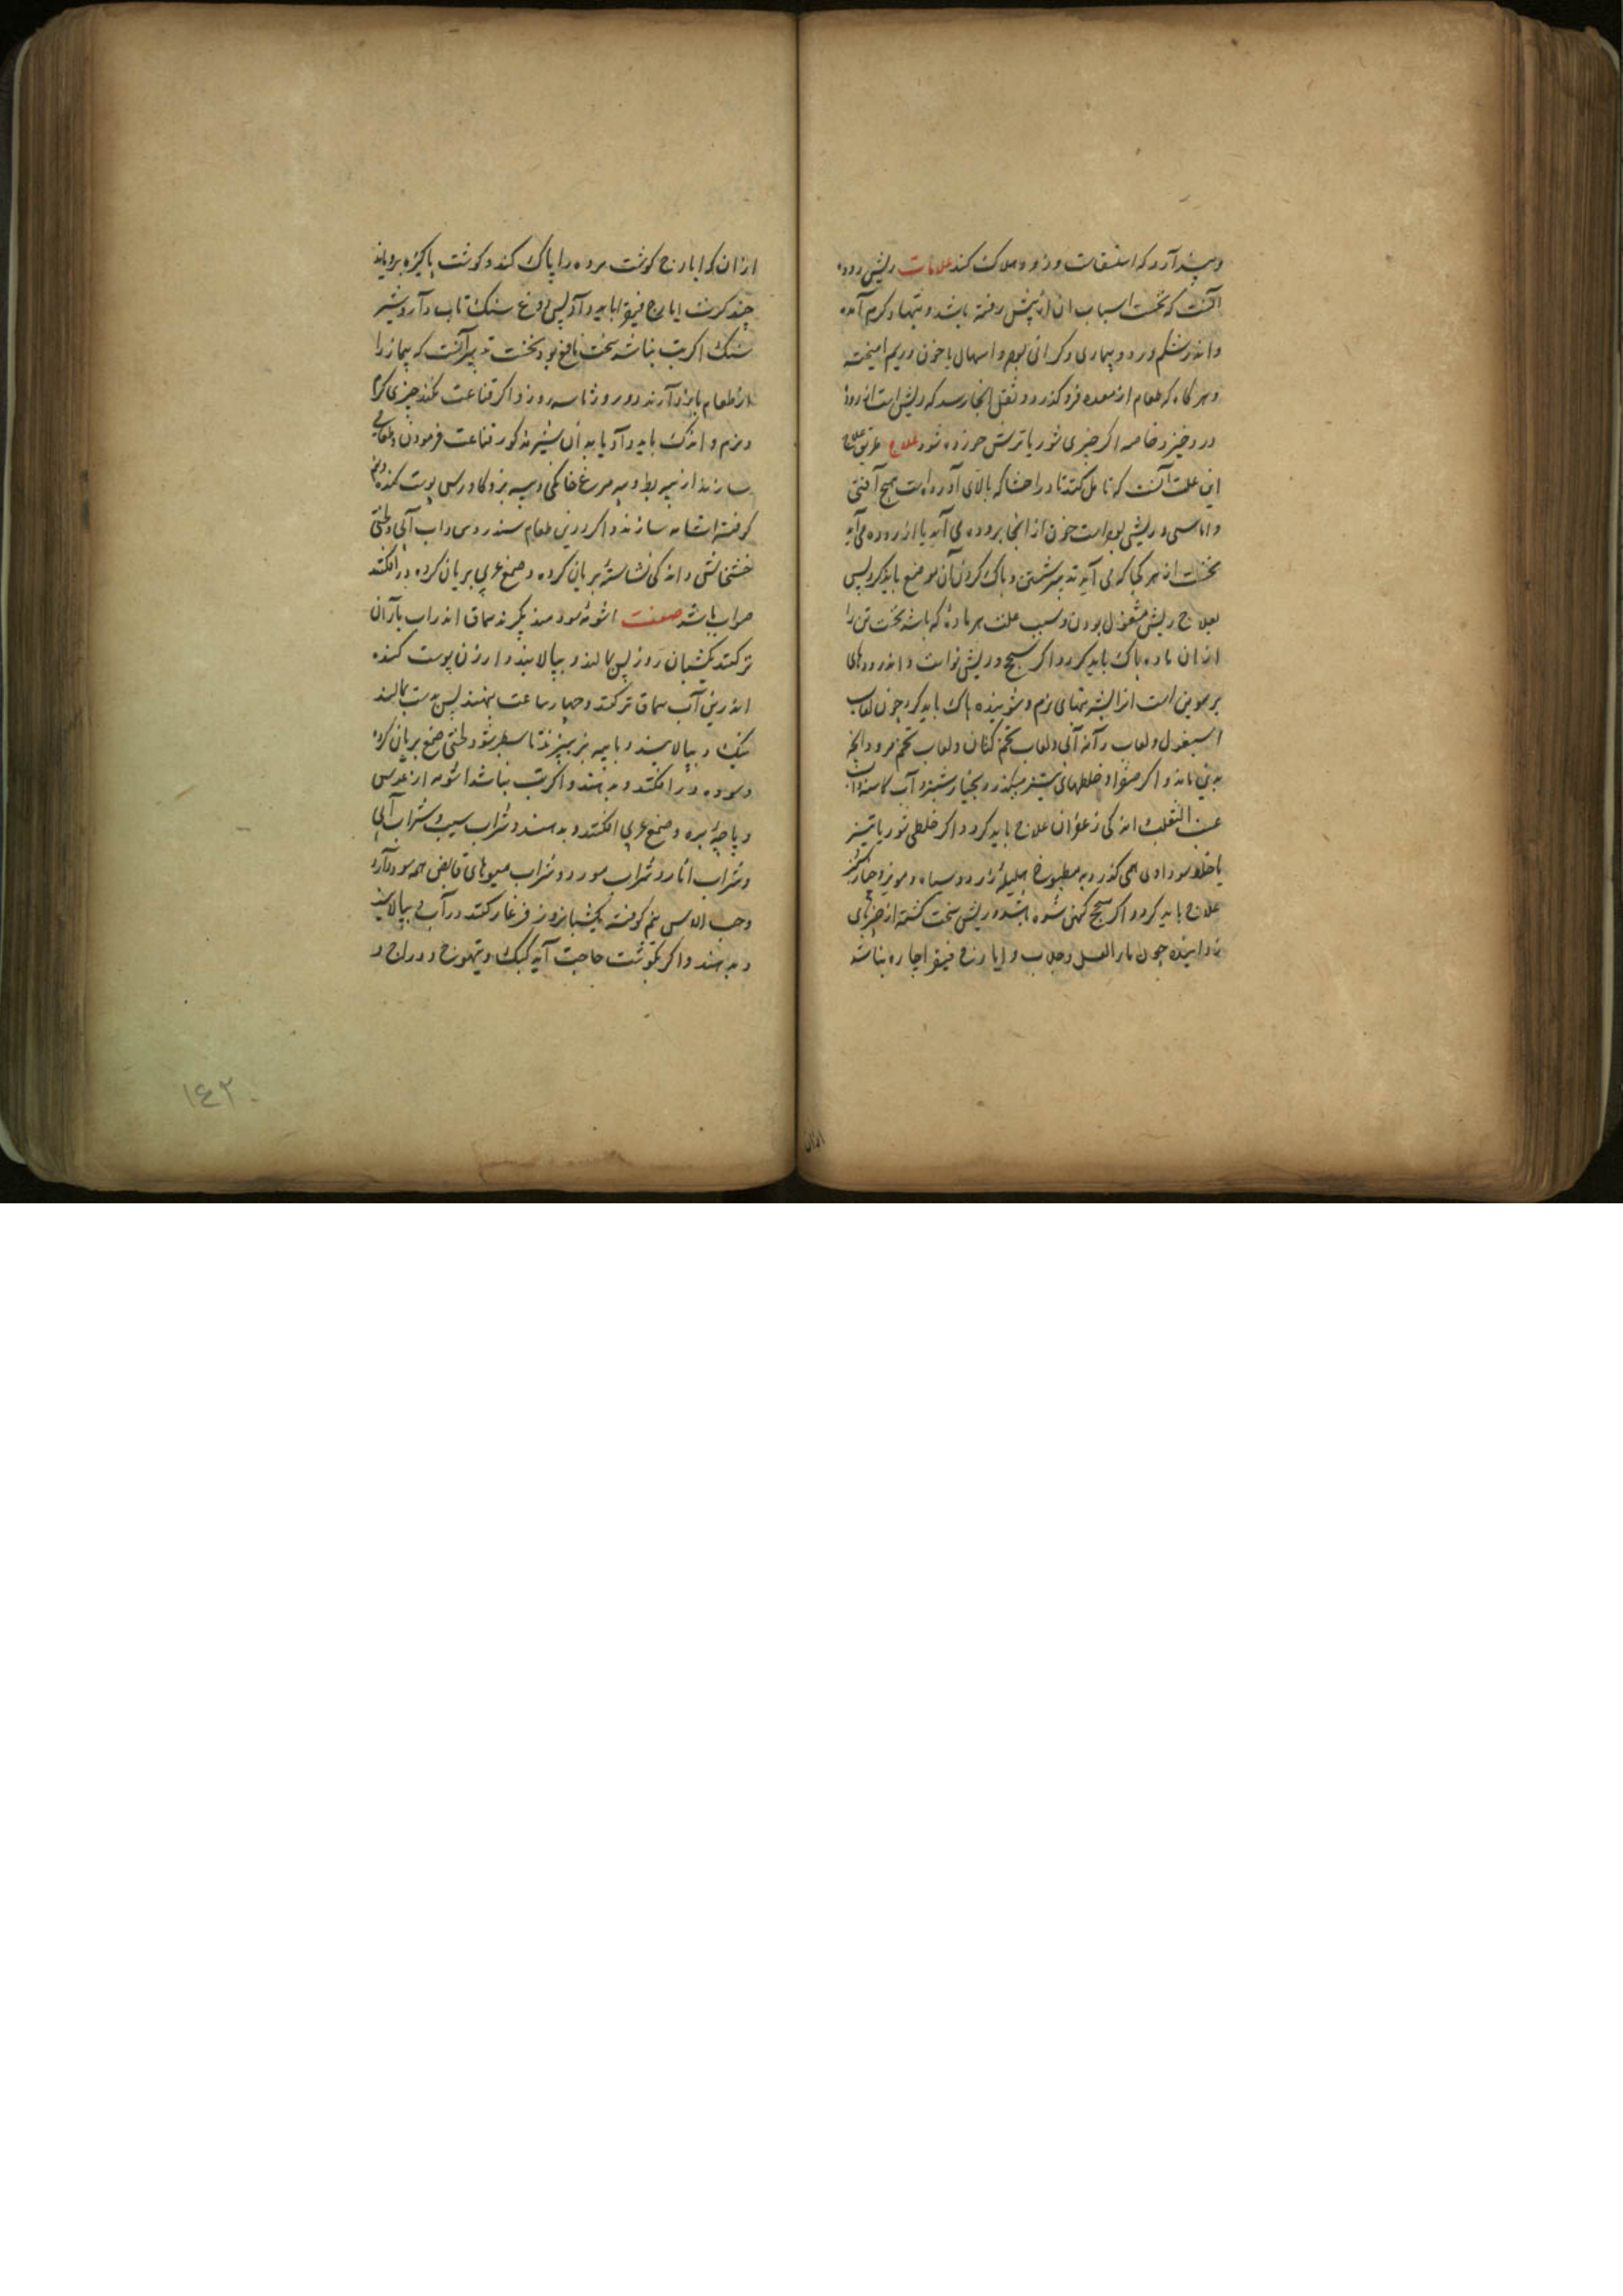 و پدید آرد که استسقاست و زود هلاک کند علامات ریش روده
آنست که نخست اسباب ان از پیش رفته باشد و تبها و کرم آمده
و اندر شکم درد و بیماری و کرانی بود و اسهال با خون و ریم امیخته
و هر کاه که طعام از معده فرو کذرد و ثفل انجا رسد که ریش است اندر روده
درد خیزد خاصه اکر چیزی شور یا ترش خورده شود علاج طریق علاج
این علت آنست که تامل کنند تا در احشا که بالای آورده است هیچ آفتی
و اماسی و ریشی بوده است خون از انجا بروده می آید یا از روده می آید
نخست از هر کجا که می آید تدبیر شستن و پاک کردن آن موضع باید کرد پس
بعلاج ریش مشغول بودن و سبب علت هر ماده که باشد نخست تن را
از ان ماده پاک باید کرد و اکر سحج و ریش نو است و اندر رودهای
برسوین است از البشربتهای نرم و شوینده پاک باید کرد چون لعاب
اسبغول و لعاب دانه آبی و لعاب تخم کتان و لعاب تخم مرو و انچه
بدین ماند و اکر صفرا و خلطهای تیز میکذرد بخیارشنبر و آب کاسنی و آب
عنب الثعلب اندکی زعفران علاج باید کرد و اکر خلطی شور یا تیز
یا خلط سوداوی همی کذرد به مطبوخ هلیله زرد و سیاه و مویز و خیارشنبر
علاج باید کرد و اکر سحج کهن شده باشد و ریش سخت کشته از چیزهای
زداینده چون ماء العسل و جلاب و ایارج فیقرا چاره نباشد
ازان
ازان که ایارج کوشت مرده را پاک کند و کوشت پاکیزه برویاند
چند کرت ایارج فیقرا باید داد پس دوغ سنک تاب دارد و شیر
سنک اکر تب نباشد سخت نافع بود نخست تدبیر آنست که بیمار را
از طعام باز دارند دو روز تا سه روز و اکر قناعت نکند چیزی کرم
و نرم و اندک باید داد یا بدان شیر مذکور قناعت فرمودن و طعامی
سازند از پیه بط و پیه مرغ خانکی و پیه بز و کاورس پوست کنده و نیم
کوفته اشامه سازند و اکر درین طعام سندروس و اب آبی و لختی
خشخاش و اندکی نشاسته بریان کرده و صمغ عربی بریان کرده در افکنند
صواب باشد صفت اشربه سودمند بکیرند سماق اندر اب باران
تر کنند یکشبان روز پس بمالند و بپالایند و ارزن پوست کنده
اندرین آب سماق تر کنند و چهار ساعت بنهند پس بدست بمالند
نیک و بپالایند و با پیه بز بپزند تا سطبر شود و لختی صمغ بریان کرده
و سوده در افکنند و بدهند و اکر تب نباشد اشربه از عدس
و پاچه بره و صمغ عربی افکنند و بدهند و شراب سیب و شراب آبی
و شراب انار و شراب مورد و شراب میوهای قابض همه سود دارد
و حب الاس نیم کوفته یکشبانروز فرغار کنند در آب و بپالایند
و بدهند و اکر بکوشت حاجت آید کبک و تیهو و دراج و
١٤٢